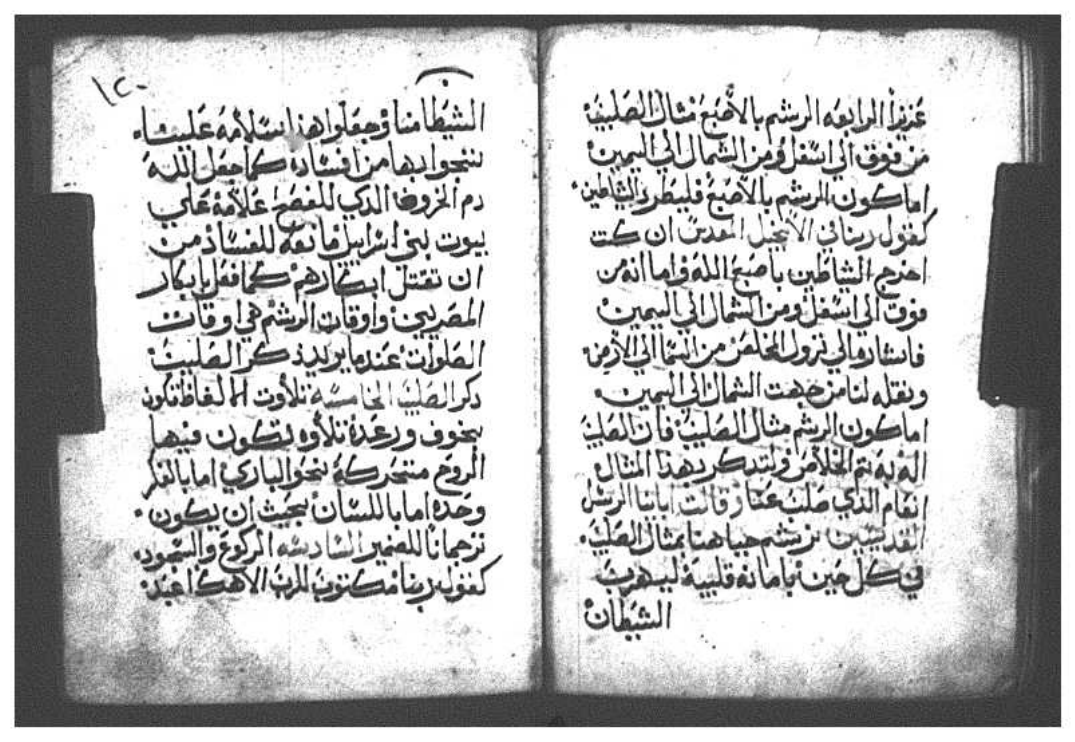 عزيزاً الرابعه الرشم بالأصبع مثال الصليب
من فوق الي اسفل ومن الشمال الي اليمين
اما كون الرشم بالاصبع فليطرد الشاطين
كقول ربنا في الانجيل المقدس ان كنت
اخرج الشياطين باصبع الله واما انه من
فوق الي اسفل ومن الشمال الي اليمين
فاشاره الي نزول المخلص من السما الي الارض
ونقله لنا من جهت الشمال الي اليمين
اما كون الرشم مثال الصليب فان الصليب
اله به تم الخلاص ولتدكر بهذا المثال
انعام الذي صلب عنا وقالت ابايا الرسل
القديسين نرشم جباهنا بمثال الصليب
في كل حين بامانه قلبيه ليهرب
الشيطان
١٢٠
الشيطان منا وجعلوا هذا سلامه علينا
ننجوا بها من افساده كما جعل الله
دم الخروف الدكي للفصح علامه علي
بيوت بني اسراييل مانعه للفساد من
ان تقتل ابكارهم كما فعل بابكار
المصريين واوقات الرشم هي اوقات
الصلوات عند ما يريد ذكر الصليب
دكر الصليب الخامسه تلاوت الالفاظ تكون
بخوف ورعدة تلاوه تكون فيها
الروح متحركة نحو الباري اما بالفكر
وحده اما باللسان بحيث ان يكون
ترجمانا للضمير السادسه الركوع والسجود
كقول ربنا مكتوب للرب الاهك اعبد